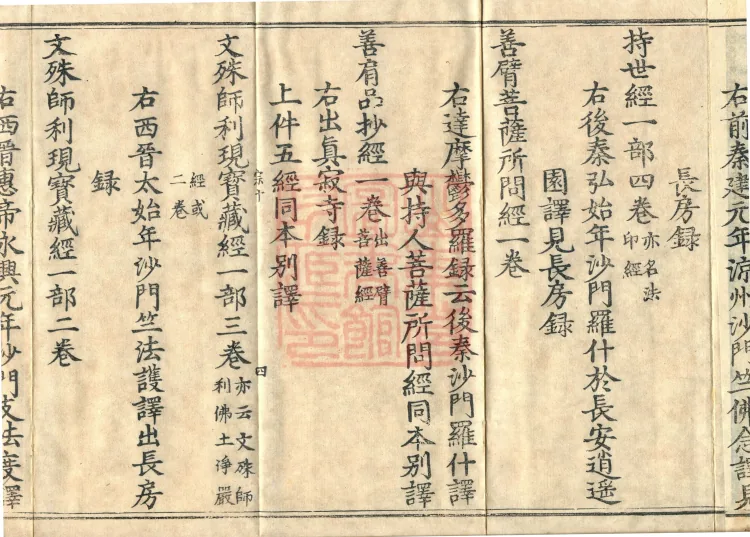 右前秦建元年涼州沙門竺佛念譯見
長房録
持世經一部四卷亦名法印經
右後秦弘始年沙門羅什於長安逍遥
園譯見長房録
善臂菩薩所問經一卷
右達摩欝多羅録云後秦沙門羅什譯
與持人菩薩所問經同本别譯
善肩品抄經一卷出善臂菩薩經
右出真寂寺録
上件五經同本别譯
文殊師利現寳藏經一部三卷亦云文殊師利佛土浄嚴
經或二卷
右西晉太始年沙門竺法護譯出長房
録
文殊師利現寳藏經一部二卷
右西晉惠帝永興元年沙門支法度譯